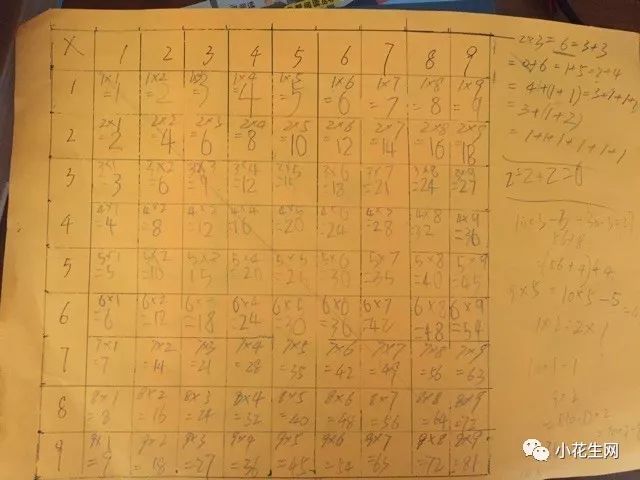 × 1 2 3 4 5 6 7 8 9
1 1×1 1×2 1×4 1×5 1×6 1×7 1×8 1×9
=1 =2 =3 4 5 =6 =7 =8 =9
2 2×1 2×2 2×3 2×4 2×5 2×6 2×7 2×8 2×9
=2 =4 =6 =8 =10 =12 =14 =16 =18
3 3×1 2×2 3×3 3×4 3×6 3×7 3×8 3×9
=3 =6 =9 =12 =18 =21 =24 =27
4 4×1 4×2 4×3 4×4 4×5 4×6 4×8 4×9
=4 =8 =12 16 =20 =24 =28 =36
5 5×1 5×2 5×4 5×5 5×6 5×7 5×8 5×9
=5 =10 15 =20 =30 =35 =40 =45
6 6×1 6×2 6×4 6×6 6×7 6×8 6×9
=6 =12 =18 =24 =30 =36 =48 =54
7 7×1 7×2 7×3 7×4 7×5 7×6 7×7 7×8 7×9
=7 =14 =21 =28 =35 =42 =49 =56 =63
8 8×1 8×2 8×3 8×4 8×5 8×6 8×7 8×8 8×9
=8 =16 =24 =32 =40 =48 =56 =64 =72
9 9×1 9×2 9×3 9×4 9×5 9×6 9×7 9×8 9×9
=9 =18 =27 =36 =45 =54 =63 =72 =81
2×3=6=3+3
=0+6=1+5=2+4
=4+(1+1)=3+1+1+1
=3+(1+2)
=1+1+1+1+1+1
2=2+2=6
56+8
=(56+4)+4
9×5=10×5-5
1×2=2×1
小花生网